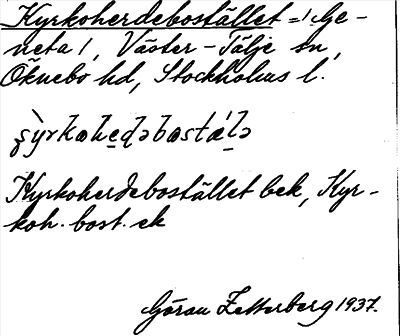 Kyrkoherdebostället =/Ge-
neta/, Väster-Tälje sn,
Öknebo hd, Stockholms l.
Kyrkoherdebostället bek, Kyr-
koh. bost. ek
Göran Zetterberg 1937.